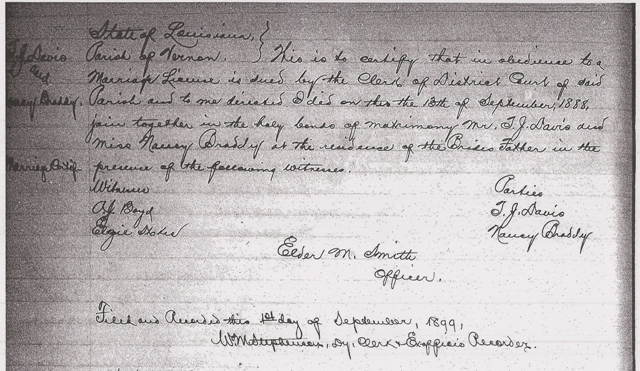 State of Louisiana, }
T. J. Davis Parish of Vernon } This is to certify that in obedience to a
and Marriage License issued by the Clerk of District Court of said
Nancy Braddy. Parish and to me directed I did on this the 13th of September, 1888,
join together in the holy bonds of matrimony Mr. T. J. Davis and
Miss Nancy Braddy at the residence of the Brides Father in the
Marriage Certif presence of the following witnesses.
Witness Parties
A J Boyd T. J. Davis
Elgie Nancy Braddy
Elder M. Smith
Officer.
Filed and Recorded this 1st day of September, 1899,
Wm Stephenson, Dy. Clerk & Exofficio Recorder.